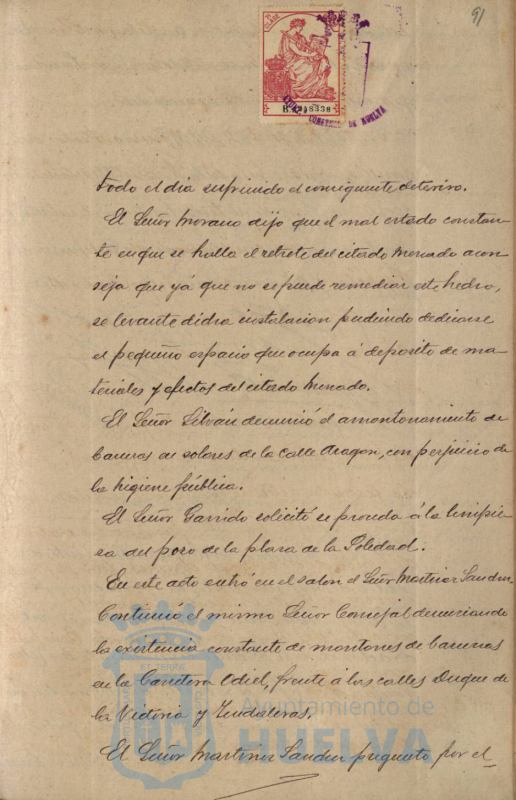 91
B.4218338
CONSTITU DE HUELVA
todo el dia sufriendo el consiguiente deterioro.
El Señor Moreno dijo que el mal estado constan-
te en que se halla el retrete del citado Mercado acon-
seja que yá que no se puede remediar este hecho,
se levante dicha instalacion pudiendo dedicarse
el pequeño espacio que ocupa á deposito de ma-
teriales y efectos del citado Mercado.
El Señor Silván denunció el amontonamiento de
basuras en solares de la Calle Aragon, con perjuicio de
la higiene pública.
El Señor Garrido solicitó se proceda á la limpie-
za del pozo de la plaza de la Soledad.
En este acto entró en el salon el Señor Martinez Sanchez.
Continuó el mismo Señor Concejal denunciando
la existencia constante de montones de basuras
en la Carretera Odiel, frente á las calles Duque de
la Victoria y
El Señor Martinez Sanchez preguntó por el
Ayuntamiento de
HUELVA